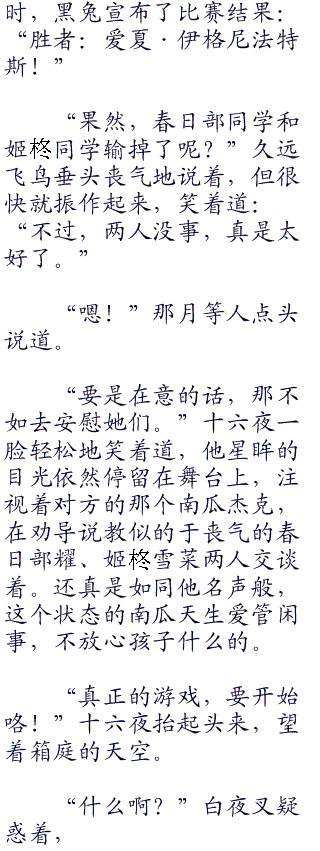 时，黑兔宣布了比赛结果：
“胜者：爱夏·伊格尼法特
斯！”
“果然，春日部同学和
姬柊同学输掉了呢？”久远
飞鸟垂头丧气地说着，但很
快就振作起来，笑着道：
“不过，两人没事，真是太
好了。”
“嗯！”那月等人点头
说道。
“要是在意的话，那不
如去安慰她们。”十六夜一
脸轻松地笑着道，他星眸的
目光依然停留在舞台上，注
视着对方的那个南瓜杰克，
在劝导说教似的于丧气的春
日部耀、姬柊雪菜两人交谈
着。还真是如同他名声般，
这个状态的南瓜天生爱管闲
事，不放心孩子什么的。
“真正的游戏，要开始
咯！”十六夜抬起头来，望
着箱庭的天空。
“什么啊？”白夜叉疑
惑着，